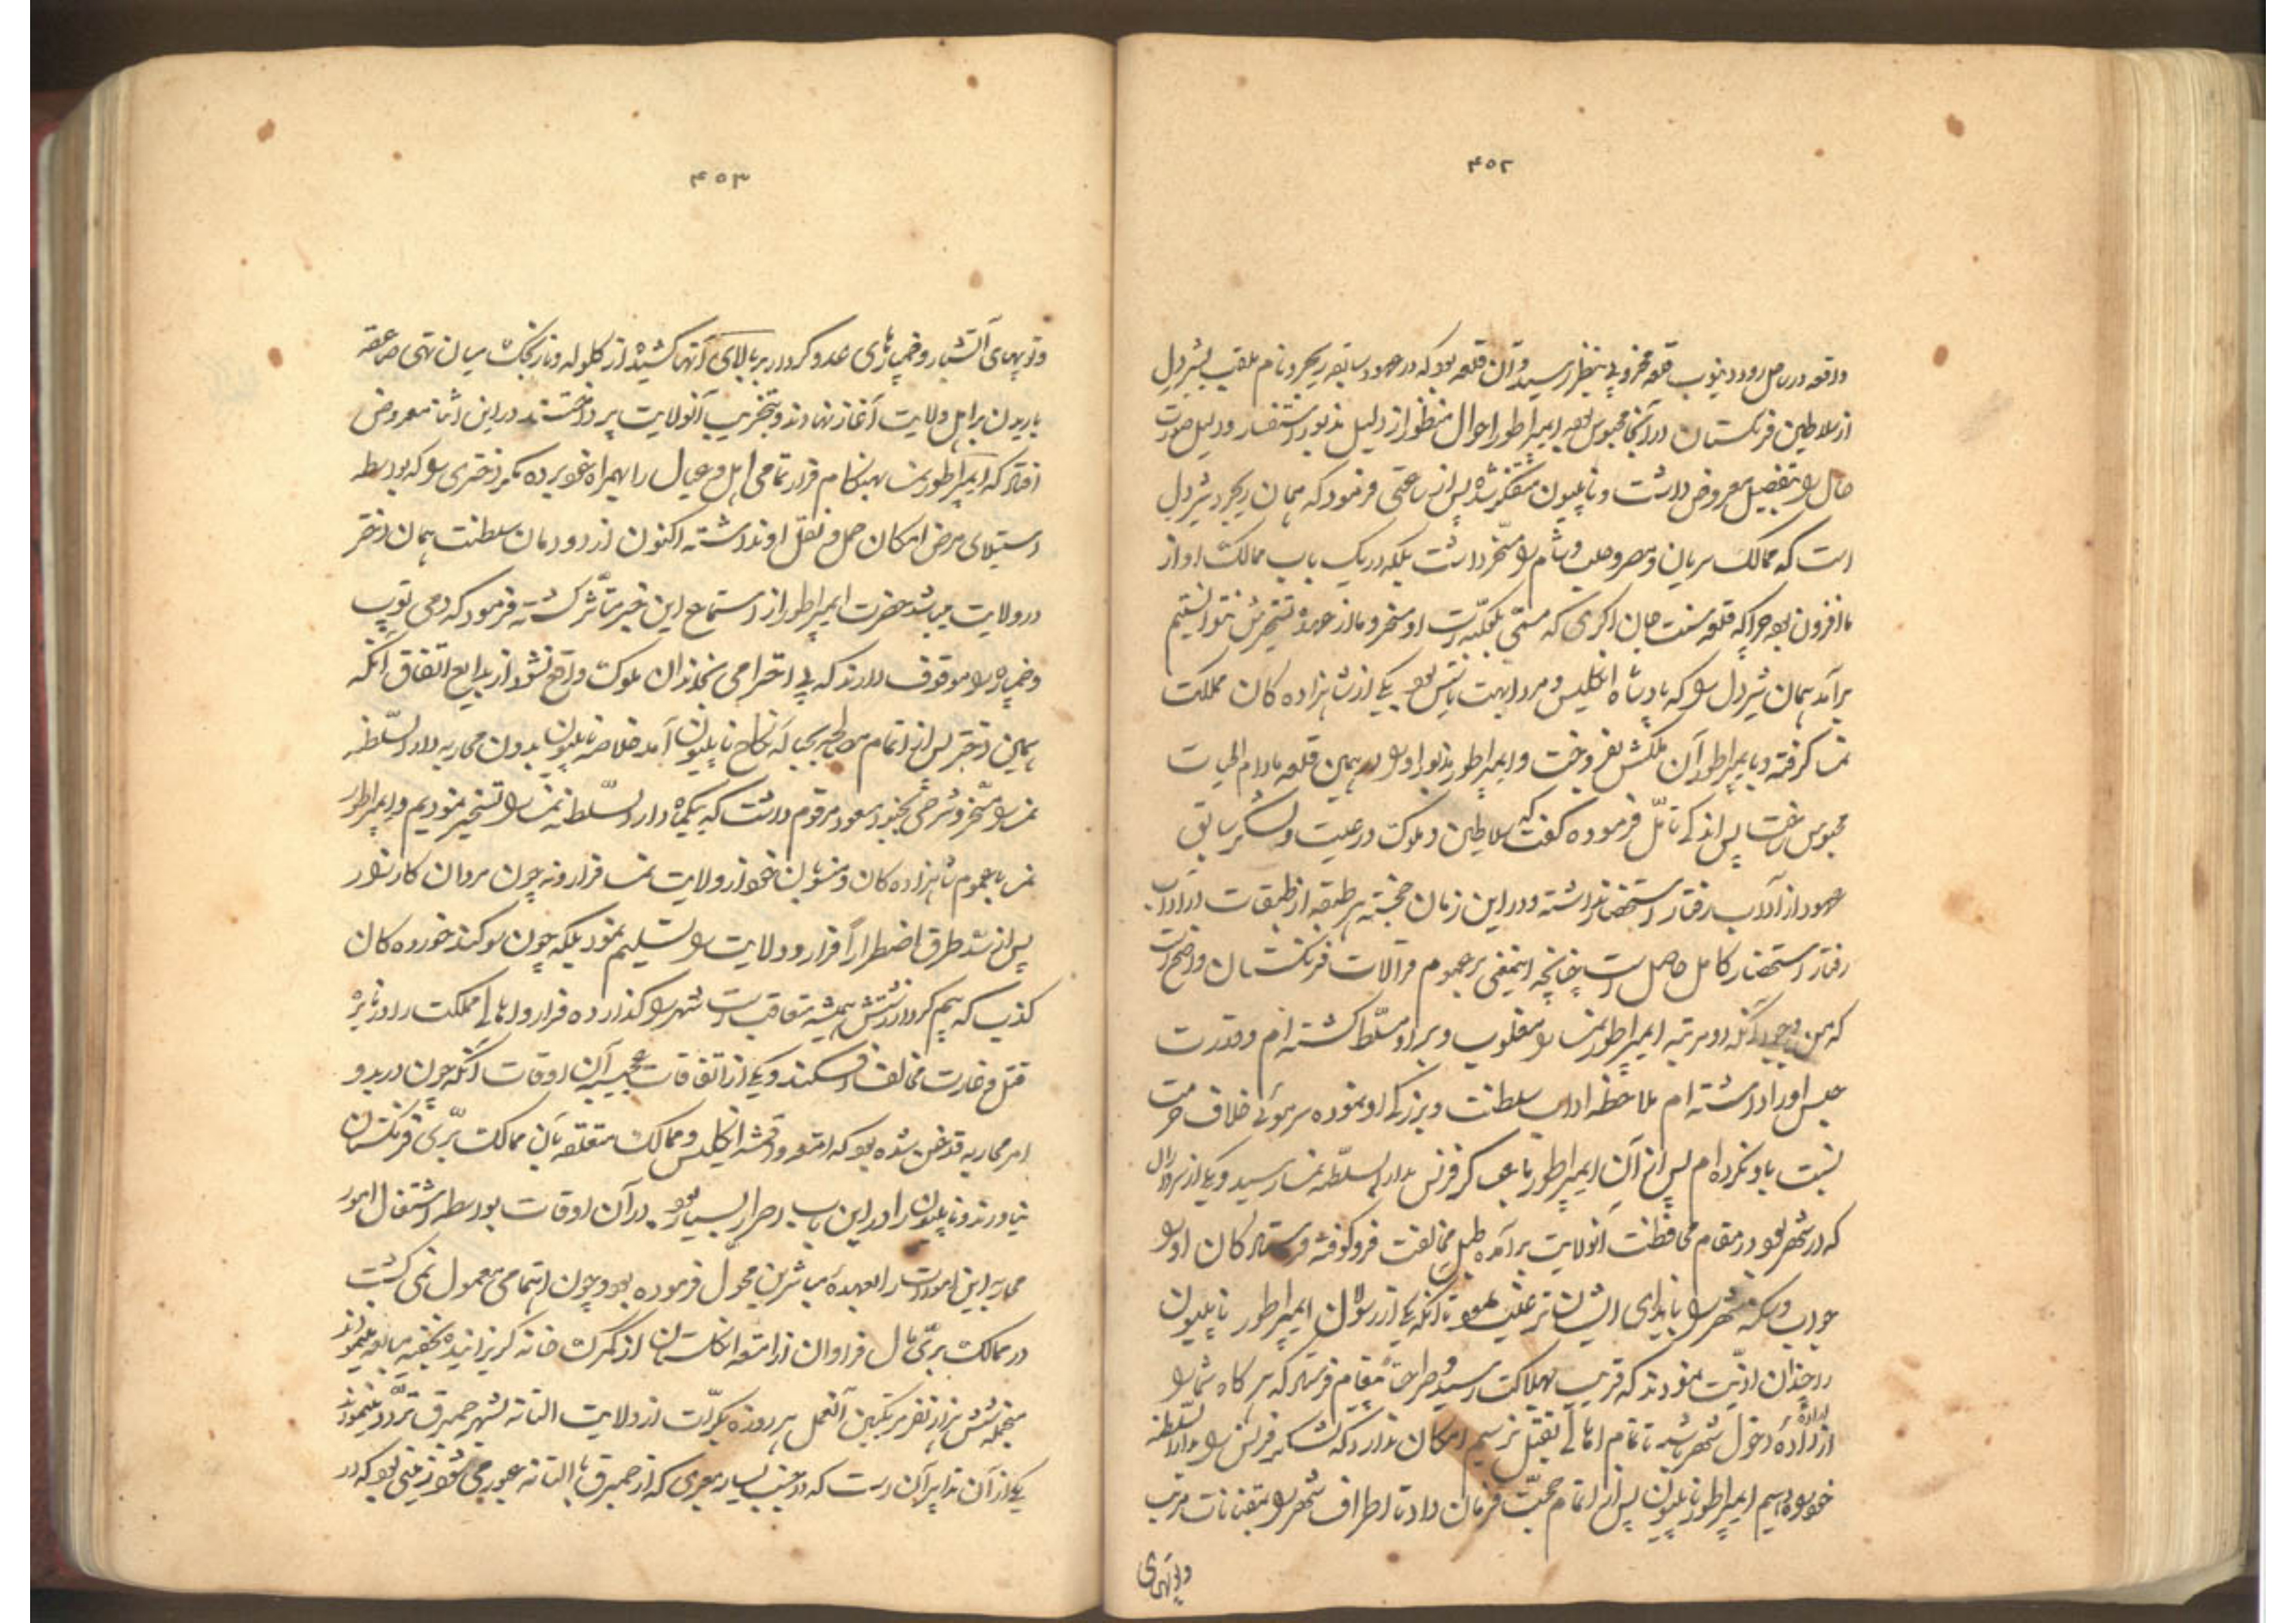 ۴۵۲
واقعه در ساحل رود دینوب قلعه مخروبی بنظر رسید و آن قلعه بود که در عهود سابقه ریچرد نام ملقب بشیردل
از سلاطین فرنگستان در آنجا محبوس بود ایمپراطور احوال منظور از دلیل مذبور استفسار و دلیل صورت
حال را بتفصیل معروض داشت و ناپلیون متفکر شده پس از ساعتی فرمود که همان ریچرد شیردل
است که ممالک سریان و مصر و حلب و شام را مسخر داشت بلکه در یک باب ممالک او از
ما افزون بود چرا که قلعه سنت جان اکری که مسمی بعکه است او مسخر و ما از عهده تسخیرش نتوانستیم
برآمد همان شیردل را که پادشاه انگلیس و مرد ابهت یابتس بود یکی از شاهزاده کان مملکت
نمسا گرفته و بایمپراطور آن ملکش بفروخت و ایمپراطور مذبور او را در همین قلعه مادام الحیات
محبوس ساخت پس اندکی تأمل فرموده گفت که سلاطین و ملوک و رعیت و لشکر سابق
عهود از آداب رفتار استحضار نداشته و در این زمان خجسته هر طبقه از طبقات در آداب
رفتار استحضار کامل حاصل است چنانچه اینمعنی بر عموم قرالات فرنگستان واضح است
که من با وجود آنکه دو مرتبه ایمپراطور نمسا را مغلوب و بر او مسلط گشته ام و قدرت
حبس او را داشته ام ملاحظه اداب سلطنت و بزرگی او نموده سر موئی خلاف حرمت
نسبت باو نکرده ام پس از آن ایمپراطور با عساکر فرنس بدار السلطنه نمسا رسید و یکی از سرداران
که در شهر بود در مقام محافظت آنولایت برآمده طبل مخالفت فرو کوفته فرستاده کان او را
جواب و سکنه شهر را بایذای ایشان ترغیب نمود تا آنکه یکی از رسولان ایمپراطور ناپلیون
را چندان اذیت نمودند که قریب بهلاکت رسید و صراحتا مقام فرستاد که هر گاه شما را
از اراده دخول شهر باشد تا تمام اهالی بقتل نرسیم امکان ندارد که لشکر فرنس را بدار السلطنه
خود راه دهیم ایمپراطور ناپلیون پس از اتمام حجت فرمان داد تا اطراف شهر را بتفنانات مرتب
و توپهای
۴۵۳
و توپهای آتشبار و خمپارهای عدو کردار بر بالای آنها کشیده از گلوله و نارنجک بسان تهی صاعقه
باریدن بر اهل ولایت آغاز نهادند و بتخریب آنولایت پرداختند در این اثنا معروض
افتاد که ایمپراطور نمسا بهنگام فرار تمامی اهل و عیال را بهمراه خود برده مگر دختری را که بواسطه
استیلای مرض امکان حمل و نقل او نداشته اکنون از دودمان سلطنت همان دختر
در ولایت میباشد حضرت ایمپراطور از استماع این خبر متأثر گشته فرمود که دمی توپ
و خمپاره را موقوف دارند که بی احترامی بخاندان ملوک واقع نشود از بدایع اتفاق آنکه
همین دختر پس از اتمام مصالحه بحباله نکاح ناپلیون آمد خلاصه ناپلیون بدون محاربه دار السلطنه
نمسا را مسخر و شرحی بجند مسعود مرقوم داشت که یکماه دار السلطنه نمسا را تسخیر نمودیم و ایمپراطور
نمسا با عموم شاهزاده کان و منسوبان خود از ولایت نمسا فرار و نه چون مردان کارزار
پس از سد طرق اضطرارا فرار و ولایت را تسلیم نمود بلکه چون سوگند خورده کان
کذب که بیم کردار زشتش همیشه متعاقب است شهر را گذارده فرار و اهالی مملکت را در نایره
قتل و غارت مخالف افکند و یکی از اتفاقات عجیبه آن اوقات آنکه چون در بدو
امر محاربه قدغن شده بود که امتعه و اقمشه انگلیس و ممالک متعلقه بآن ممالک بری فرنگستان
نیاورند و ناپلیون را در این باب اصرار بسیار بود در آن اوقات بواسطه اشتغال امور
محاربه این امورات را بعهده مباشرین محول فرموده بود و چون اهتمامی معمول نمی گشت
در ممالک بری مال فراوان از امتعه انگلستان از گمرک خانه گریزانیده بخفیه میاوردند
منجمله شش هزار نفر مرتکبین آنعمل هر روزه بکرات از ولایت التانه بشهر حمبرق تردد مینمودند
یکی از آن تدابیر آن است که در جنب یسار معبری که از حمبرق بالتانه عبور می شود زمینی بود که در